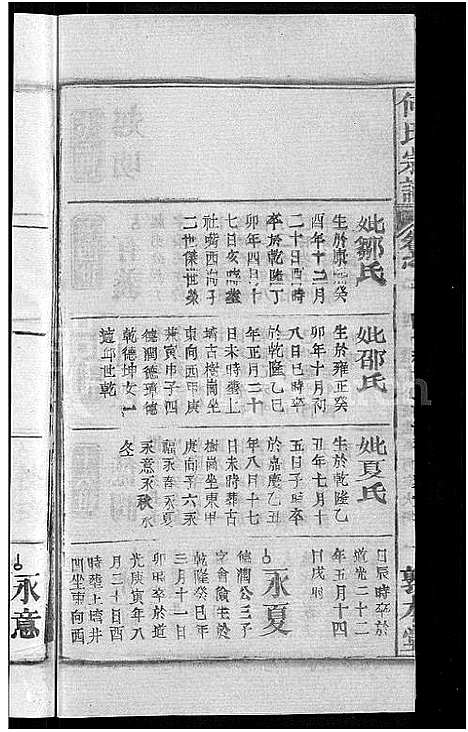 何氏宗譜
妣鄒氏
生於康熙癸
酉年十二月
二十日酉時
卒於乾隆丁
卯年四月十
七日亥時葬
社
二世傑世榮
妣邵氏
生於雍正癸
卯年十月初
八日巳時卒
於乾隆乙巳
年正月二十
日未時葬上
壋古樹崗坐
東向西甲庚
兼寅申子四
德潤德
乾德坤女一
適邱世乾
妣夏氏
生於乾隆乙
丑年七月十
五日子時卒
於嘉慶乙丑
年八月十七
日未時葬古
樹崗坐東甲
庚向子六永
福永春永夏
永意永秋永
冬
日辰時卒於
道光二十二
年五月十四
日戌時
永夏
德潤公三子
字會
乾隆癸巳年
三月十一日
卯時卒於道
光庚寅年八
月二十日酉
時葬上壋井
凹坐東向西
敦本堂
永意